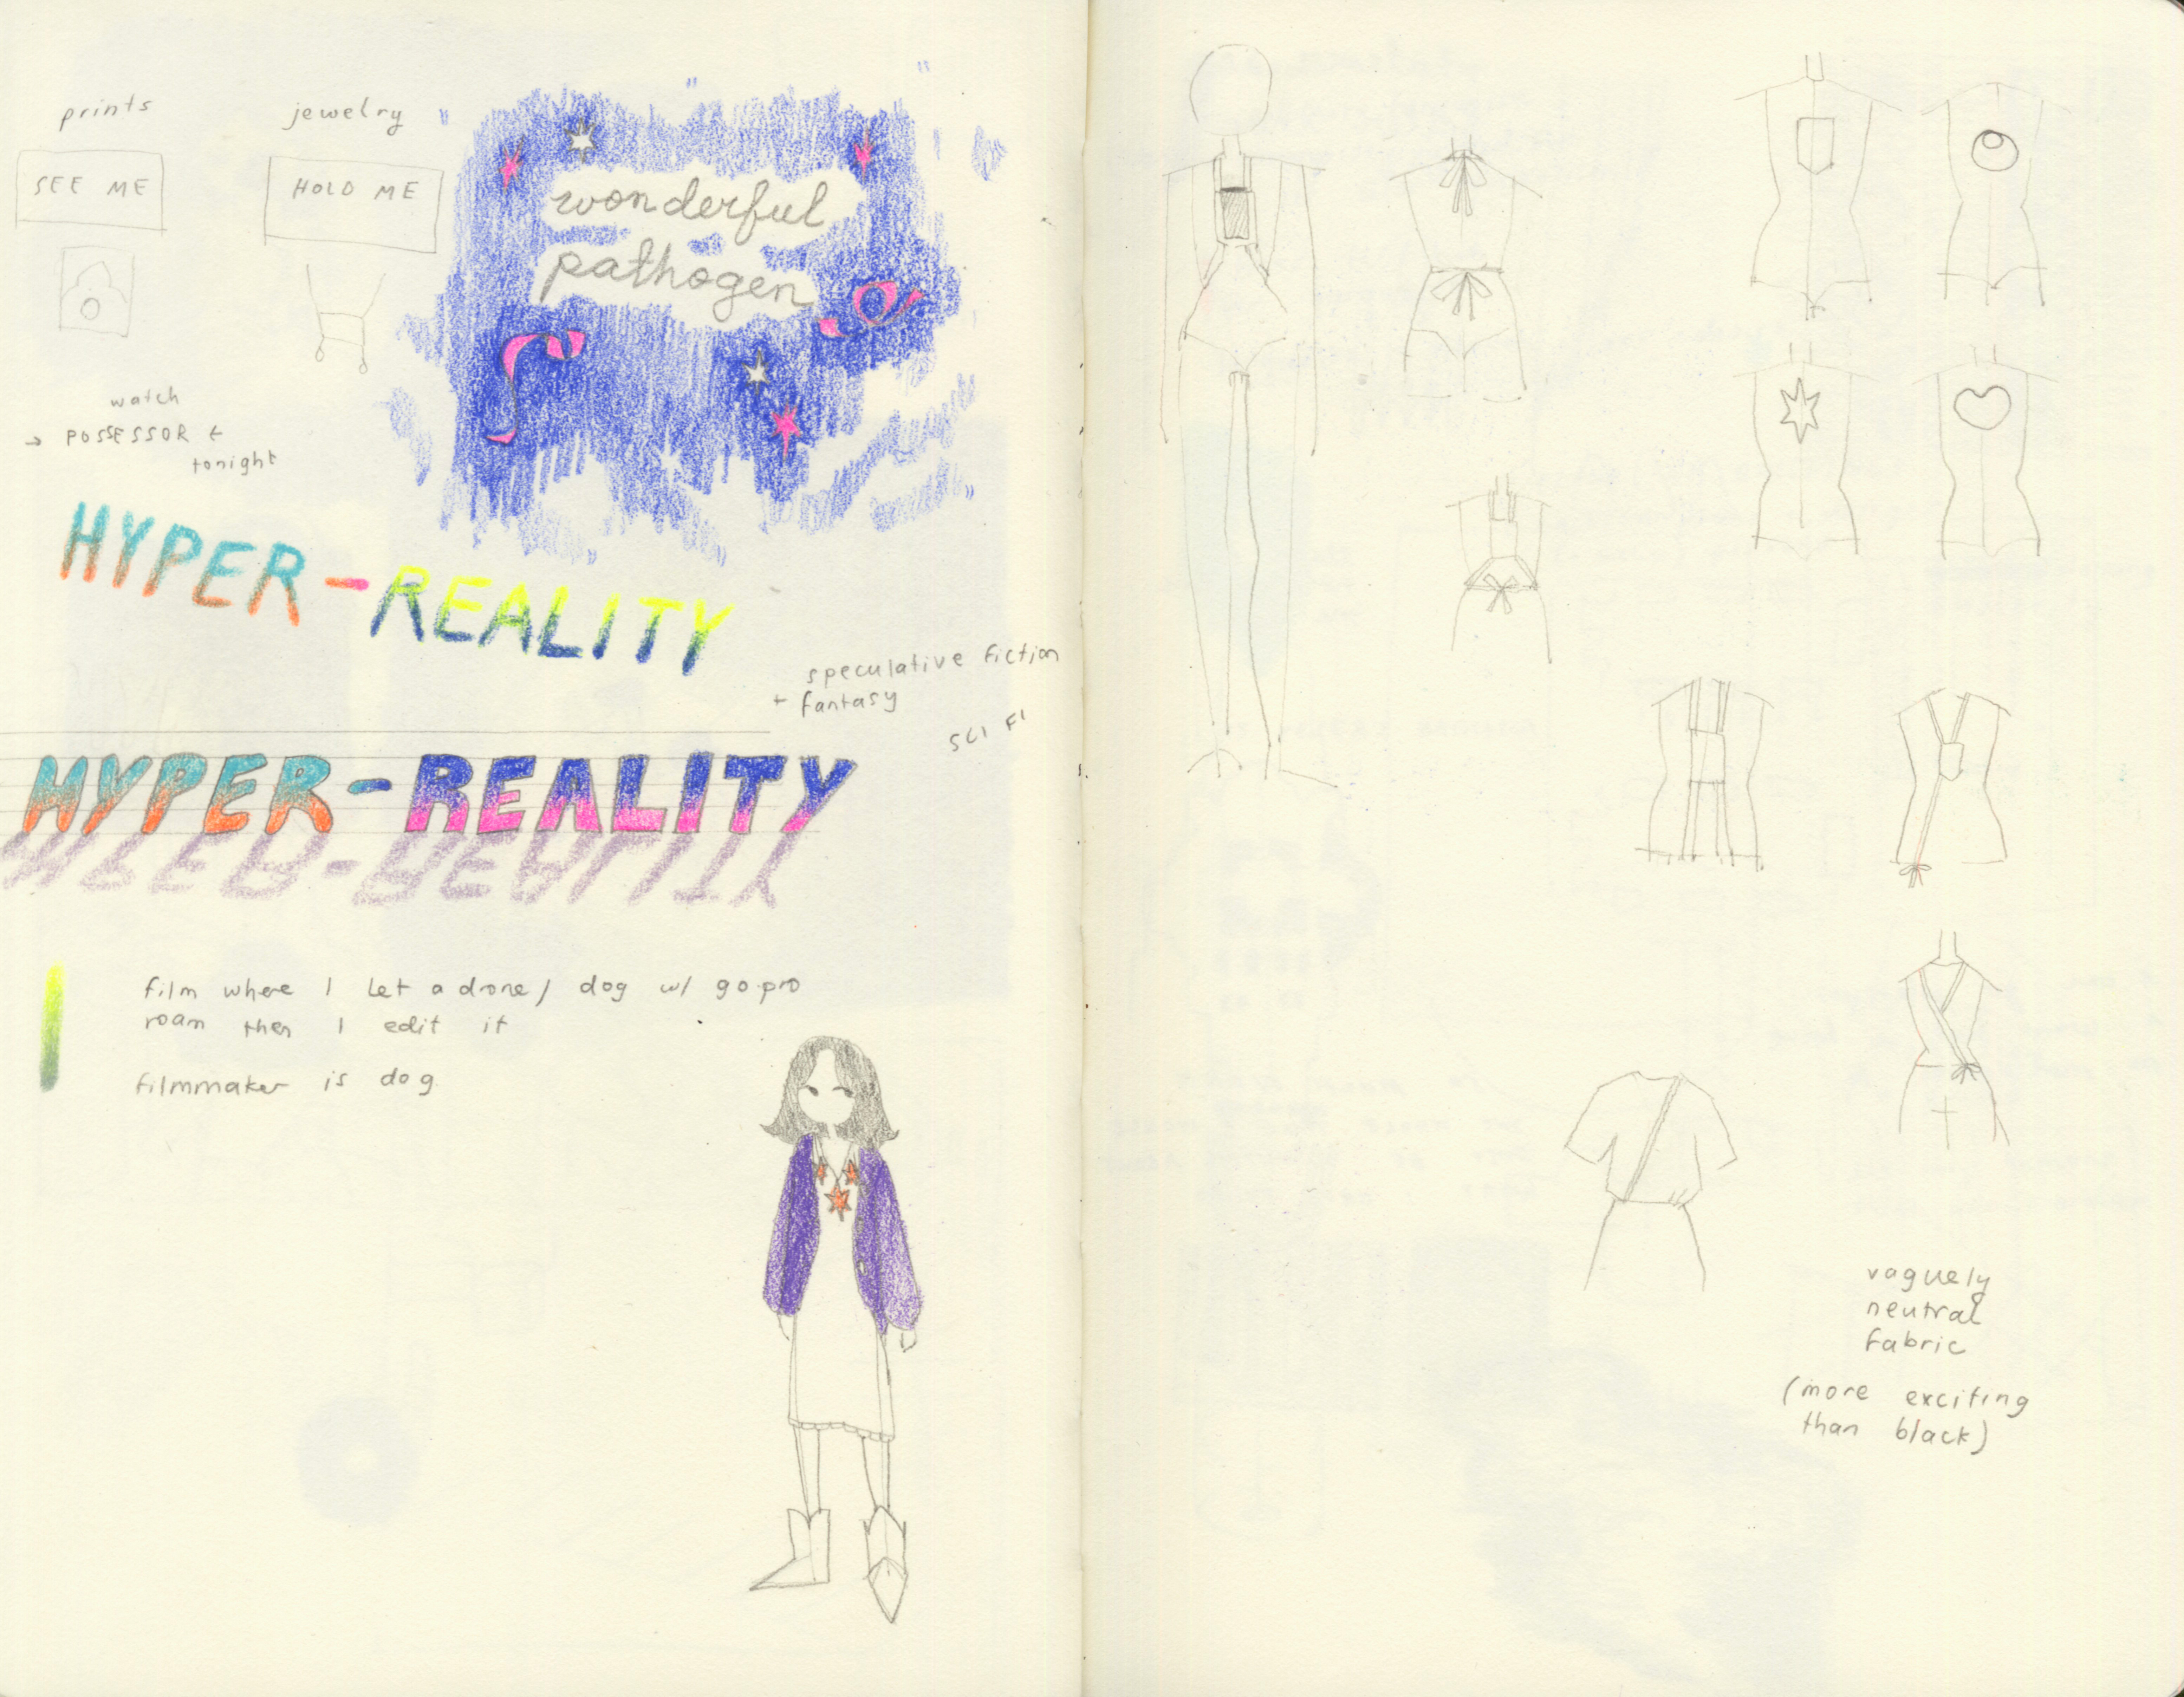 prints
jewelry
SEE ME
HOLD ME
wonderful
pathogen
watch
→ POSSESSOR ←
tonight
HYPER-REALITY
speculative fiction
+ fantasy
SCI FI
HYPER-REALITY
HYPER-REALITY
film where I let a drone / dog w/ gopro
roam then I edit it
filmmaker is dog
vaguely
neutral
fabric
(more exciting
than black)